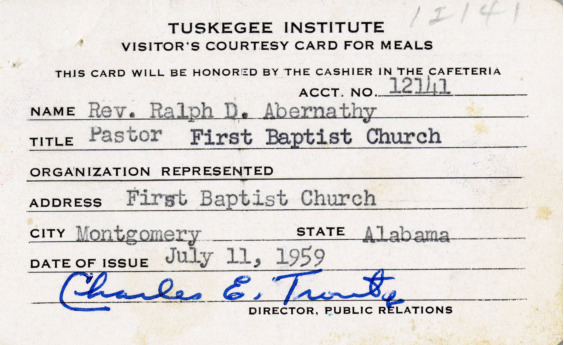 12141
TUSKEGEE INSTITUTE
VISITOR'S COURTESY CARD FOR MEALS
THIS CARD WILL BE HONORED BY THE CASHIER IN THE CAFETERIA
ACCT. NO. 12141
NAME Rev. Ralph D. Abernathy
TITLE Pastor First Baptist Church
ORGANIZATION REPRESENTED
ADDRESS First Baptist Church
CITY Montgomery STATE Alabama
DATE OF ISSUE July 11, 1959
Charles E. Trout
DIRECTOR, PUBLIC RELATIONS